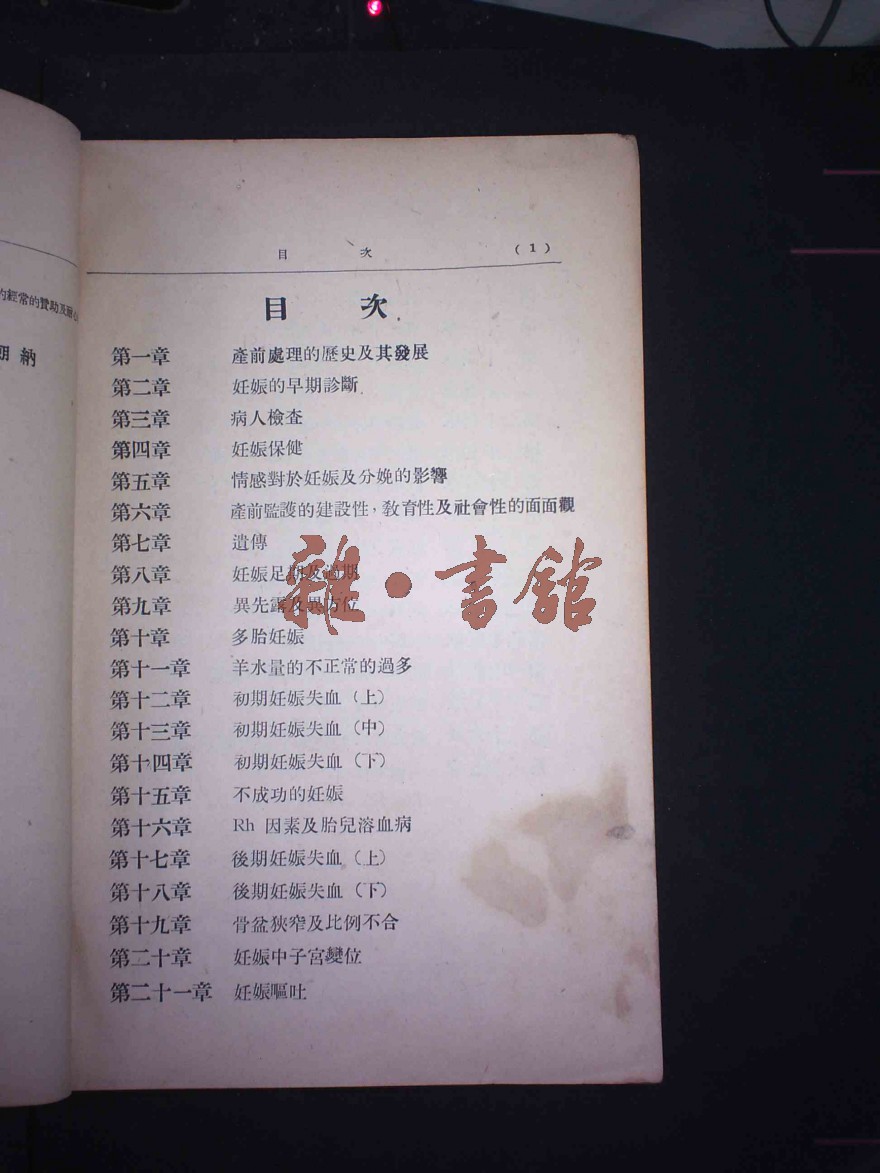 的經常的贊助及
朗納
目 次 (1)
目 次
第一章 產前處理的歷史及其發展
第二章 妊娠的早期診斷
第三章 病人檢查
第四章 妊娠保健
第五章 情感對於妊娠及分娩的影響
第六章 產前監護的建設性，敎育性及社會性的面面觀
第七章 遺傳
第八章 妊娠足期及過期
第九章 異先露及異方位
雜·書館
第十章 多胎妊娠
第十一章 羊水量的不正常的過多
第十二章 初期妊娠失血（上）
第十三章 初期妊娠失血（中）
第十四章 初期妊娠失血（下）
第十五章 不成功的妊娠
第十六章 Rh 因素及胎兒溶血病
第十七章 後期妊娠失血（上）
第十八章 後期妊娠失血（下）
第十九章 骨盆狹窄及比例不合
第二十章 妊娠中子宮變位
第二十一章 妊娠嘔吐